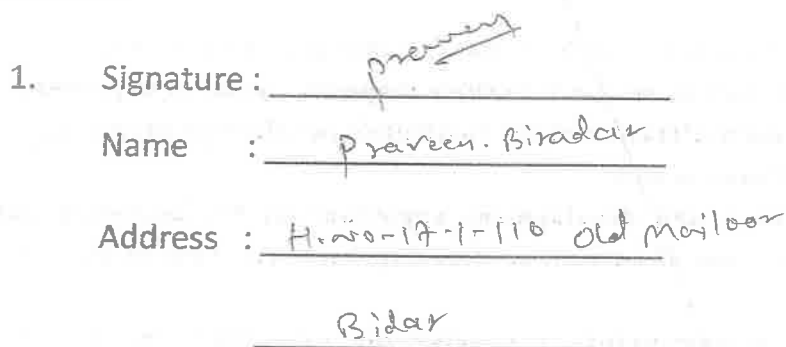 1. Signature : praveen
Name : Praveen. Biradar
Address : H.no-17-1-110 Old Mailoor
Bidar